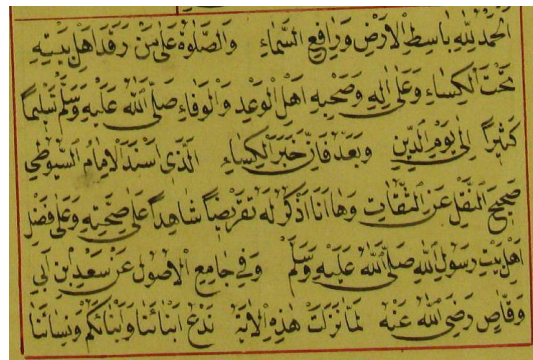 اَلْحَمْدُ لِلّٰهِ بَاسِطِ الْاَرْضِ وَرَافِعِ السَّمَاءِ وَالصَّلٰوةُ عَلٰى مَنْ رَقَدَ اَهْلُ بَيْتِهِ
تَحْتَ الْكِسَاءِ وَعَلٰى اٰلِهِ وَصَحْبِهِ اَهْلِ الْوَعْدِ وَالْوَفَاءِ صَلَّى اللّٰهُ عَلَيْهِ وَسَلَّمَ تَسْلِيمًا
كَثِيرًا اِلٰى يَوْمِ الدِّينِ وَبَعْدُ فَاِنَّ خَبَرَ الْكِسَاءِ الَّذِى اَسْنَدَ الْاِمَامُ السُّيُوطِي
صَحِيحَ النَّقْلِ عَنِ الثِّقَاتِ وَهَا اَنَا اَذْكُرُ لَهُ تَقْرِيضًا شَاهِدًا عَلٰى صِحَّتِهِ وَعَلٰى فَضْلِ
اَهْلِ بَيْتِ رَسُولِ اللّٰهِ صَلَّى اللّٰهُ عَلَيْهِ وَسَلَّمَ وَفِى جَامِعِ الْاُصُولِ عَنْ سَعْدِ بْنِ اَبِي
وَقَّاصٍ رَضِىَ اللّٰهُ عَنْهُ لَمَّا نَزَلَتْ هٰذِهِ الْاٰيَةُ نَدْعُ اَبْنَائَنَا وَاَبْنَائَكُمْ وَنِسَائَنَا